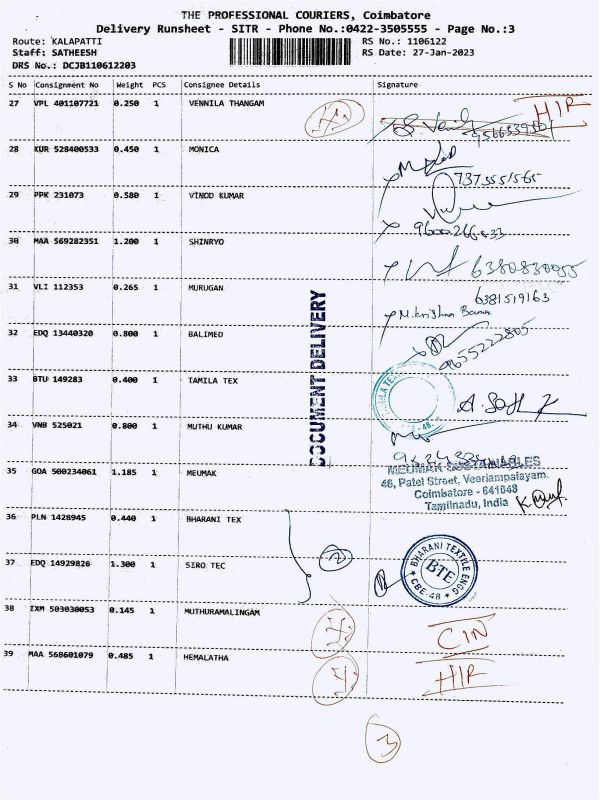 THE PROFESSIONAL COURIERS, Coimbatore
Delivery Runsheet - SITR - Phone No.:0422-3505555 - Page No.:3
Route: KALAPATTI RS No.: 1106122
Staff: SATHEESH RS Date: 27-Jan-2023
DRS No.: DCJB110612203
S No Consignment No Weight PCS Consignee Details Signature
27 VPL 401107721 0.250 1 VENNILA THANGAM HIR
28 KUR 528400533 0.450 1 MONICA
7373551565
29 PPK 231073 0.580 1 VINOD KUMAR
30 MAA 569282351 1.200 1 SHINRYO
6380830055
31 VLI 112353 0.265 1 MURUGAN 6381519163
32 EDQ 13440320 0.800 1 BALIMED
9655222805
33 BTU 149283 0.400 1 TAMILA TEX
34 VNB 525021 0.800 1 MUTHU KUMAR
35 GOA 500234061 1.185 1 MEUMAK
46, Patel Street, Veeriampalayam,
Coimbatore - 641048
Tamilnadu, India
DOCUMENT DELIVERY
36 PLN 1428945 0.440 1 BHARANI TEX
37 EDQ 14929826 1.300 1 SIRO TEC
2
BHARANI TEXTILE ENGG
BTE
CBE-48
38 IXM 503030053 0.145 1 MUTHURAMALINGAM
CIN
39 MAA 568601079 0.485 1 HEMALATHA
HIR
3